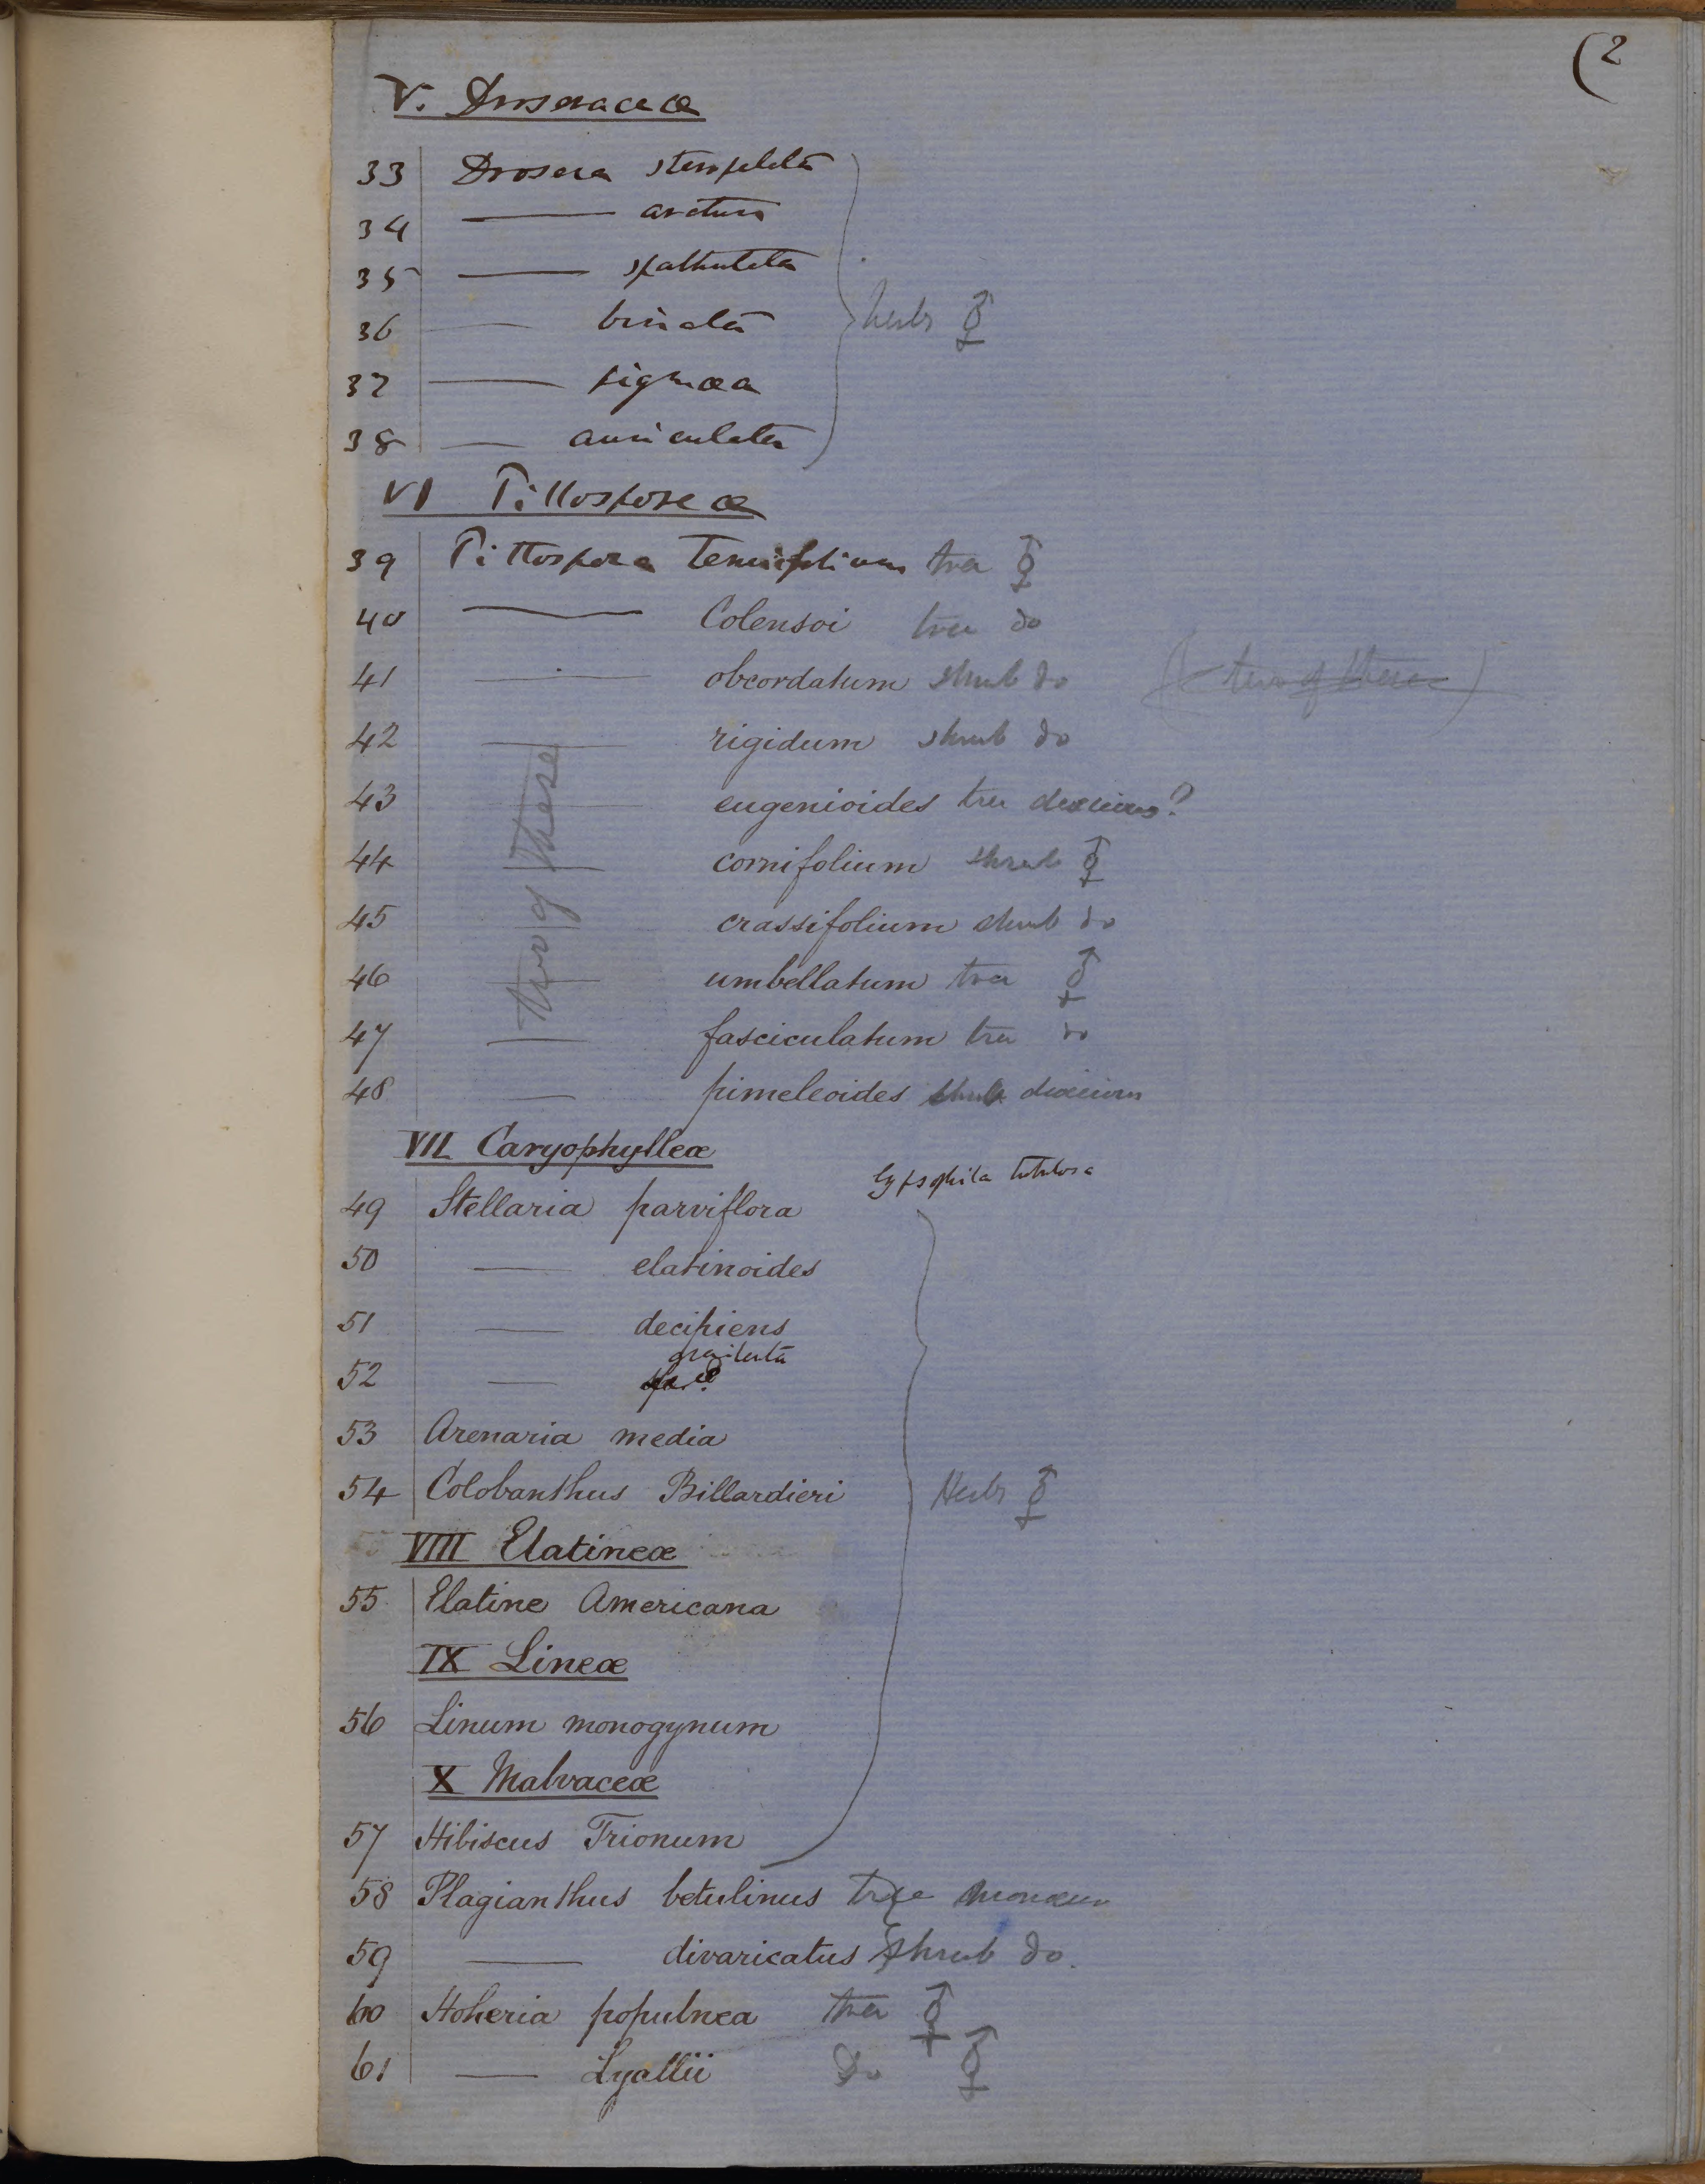 (2
V. Droseraceæ
33 Drosera stenopetala
34 —— arcturi
35 —— spathulata
36 —— binata
herbs ⚥
37 —— pigmæa
38 —— auriculata
VI Pittosporeæ
39 Pittospora Tenuifolium tree ⚥
40 —— Colensoi tree do
41 —— obcordatum shrub do (two of these)
42 —— rigidum shrub do
43 —— eugenioides tree diœcious?
44 —— cornifolium shrub ⚥
45 crassifolium shrub do
46 —— umbellatum tree ⚥
47 —— fasciculatum tree do
48 —— pimeleoides shrub diœcious
two of these
VII Caryophylleæ
Gypsophila tubulosa
49 Stellaria parviflora
50 —— elatinoides
51 —— decipiens
52 ——
53 Arenaria media
54 Colobanthus Billardieri Herbs ⚥
VIII Elatineæ
55 Elatine Americana
IX Lineæ
56 Linum monogynum
X Malvaceæ
57 Hibiscus Trionum
58 Plagianthus betulinus tree
59 —— divaricatus shrub do.
60 Hoheria populnea tree ⚥
61 —— Lyallii Do ⚥